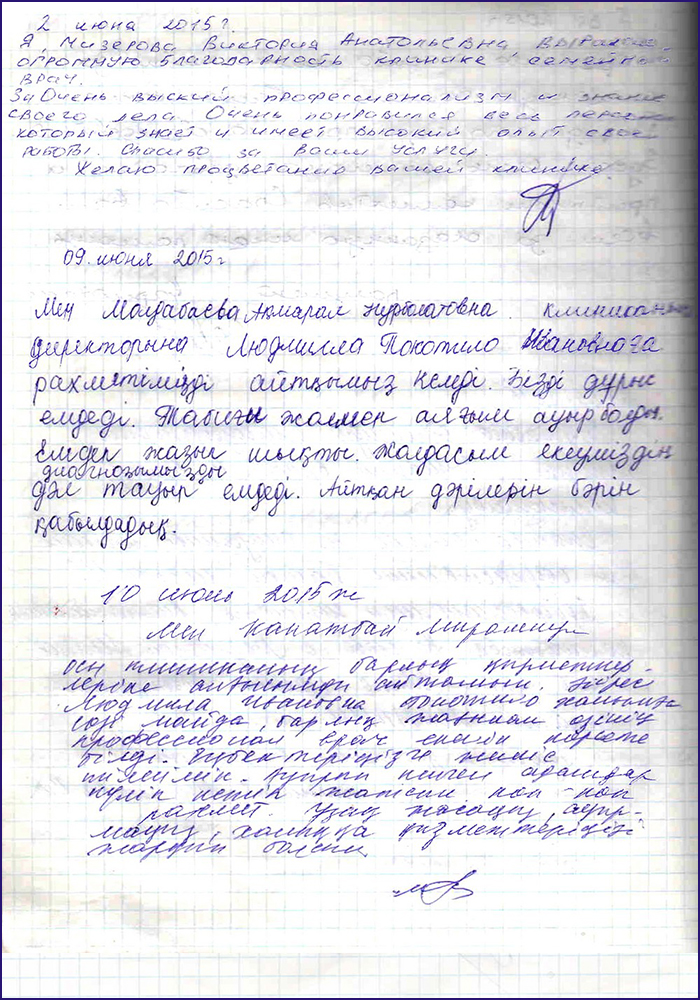 2 июна 2015 г.
Я, Мизерова Виктория Анатольевна, выражаю
огромную благодарность клинике "семейный
врач.
За Очень выский профессионализм и знание
своего дела. Очень понравился весь персонал
который знает и имеет высокий опыт своей
работы. Спасибо за ваши услуги.
Желаю процветание вашей клинике.
09. июня 2015 г
Мен Акмарал Нурболатовна. клиниканың
директорына Людмилла Покотило Ивановнаға
рахметімізді айтқымыз келді. Бізді дұрыс
емдеді. Табиғи жолмен аяғым ауыр болды.
Емдеп жазып шықты. Жолдасым екеуміздің
диагнозымызды
дәл тауып емдеді. Айтқан дәрілерін бәрін
қабылдадық.
10 июнь 2015 ж
Мен Канатбай
осы клиниканың барлық қызметтер-
леріне айтамын.
Людмила Ивановна Покотило
барлық
профессионал врач екенін көрсете
білді. Еңбектеріңізге жеміс
тілеймін. келген адамдар
күліп кетіп жатсын көп-көп
рахмет. Ұзақ жасаңыз, ауыр-
маңыз, халыққа қызметтеріңіз
болсын